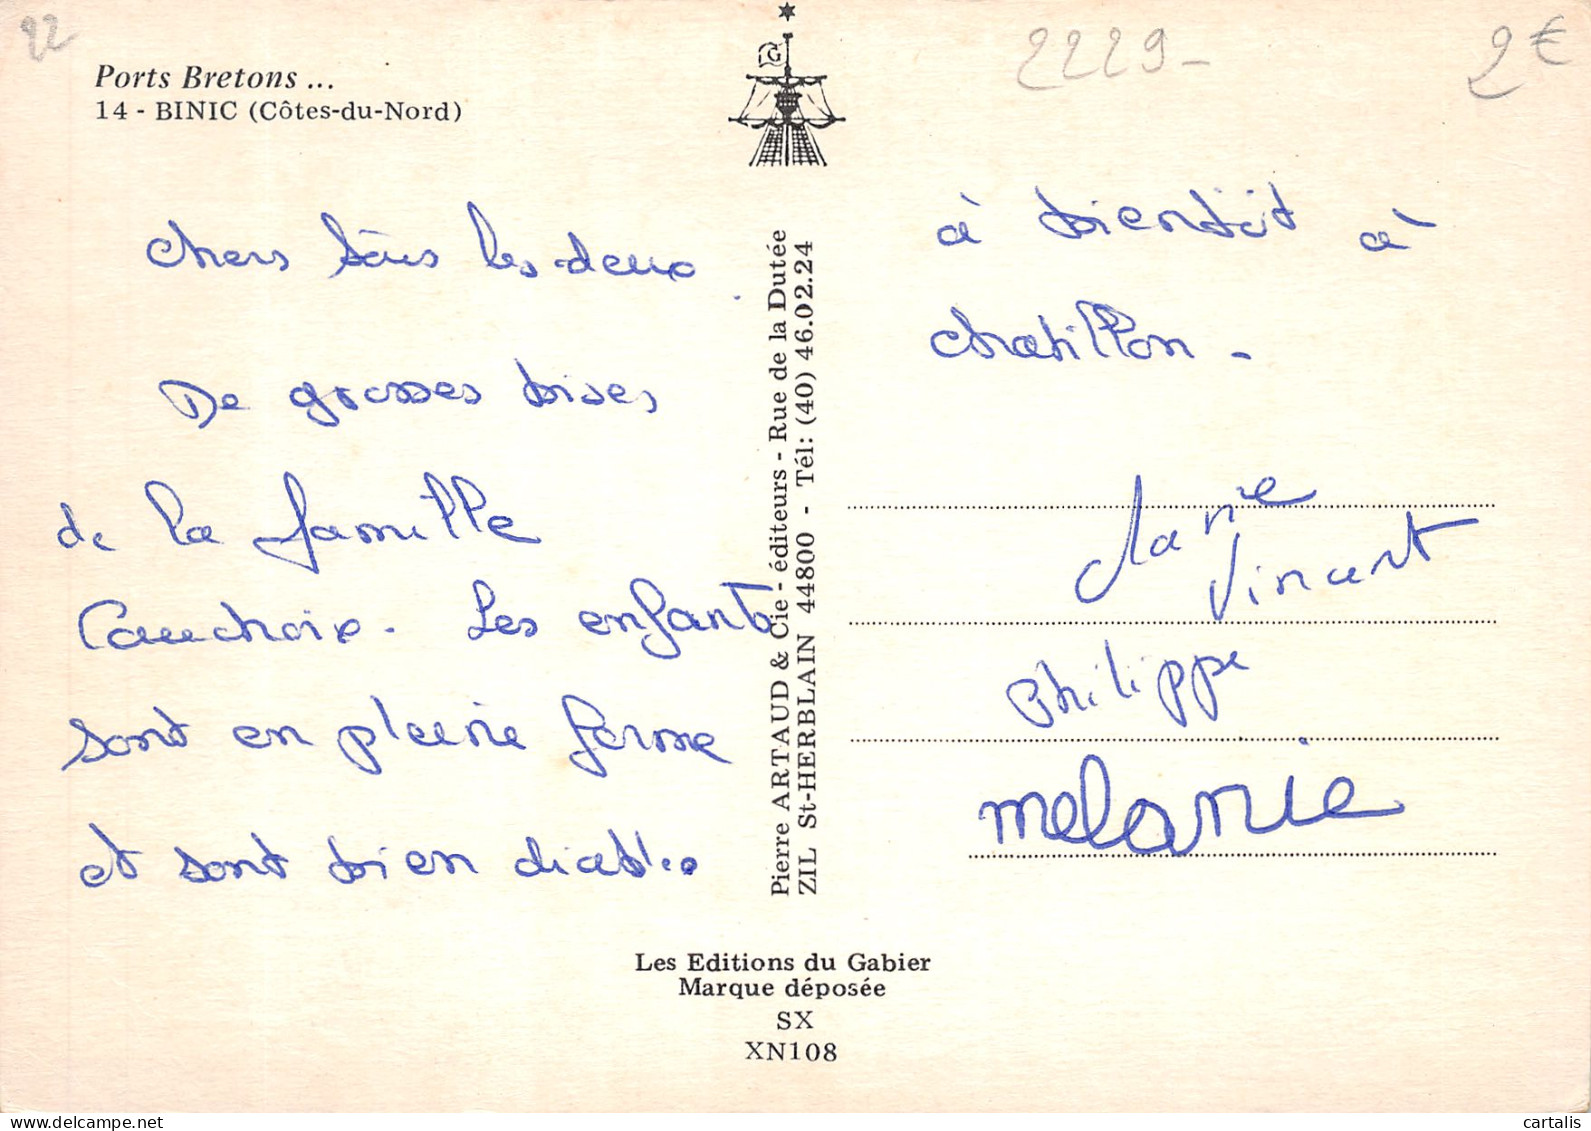 22
2229-
2€
Ports Bretons ...
14 - BINIC (Côtes-du-Nord)
G
chers tous les deux.
De grosses bises
de la famille
Cauchoix. Les enfants
sont en pleine forme
et sont bien diables
Pierre ARTAUD & Cie - éditeurs - Rue de la Dutée
ZIL St-HERBLAIN 44800 - Tél: (40) 46.02.24
à bientôt à
chatillon -
Marie
Vincent
Philippe
melanie
Les Editions du Gabier
Marque déposée
SX
XN108
cartalis